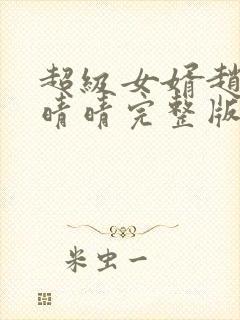 超级女婿趙
晴晴完整版
米虫一